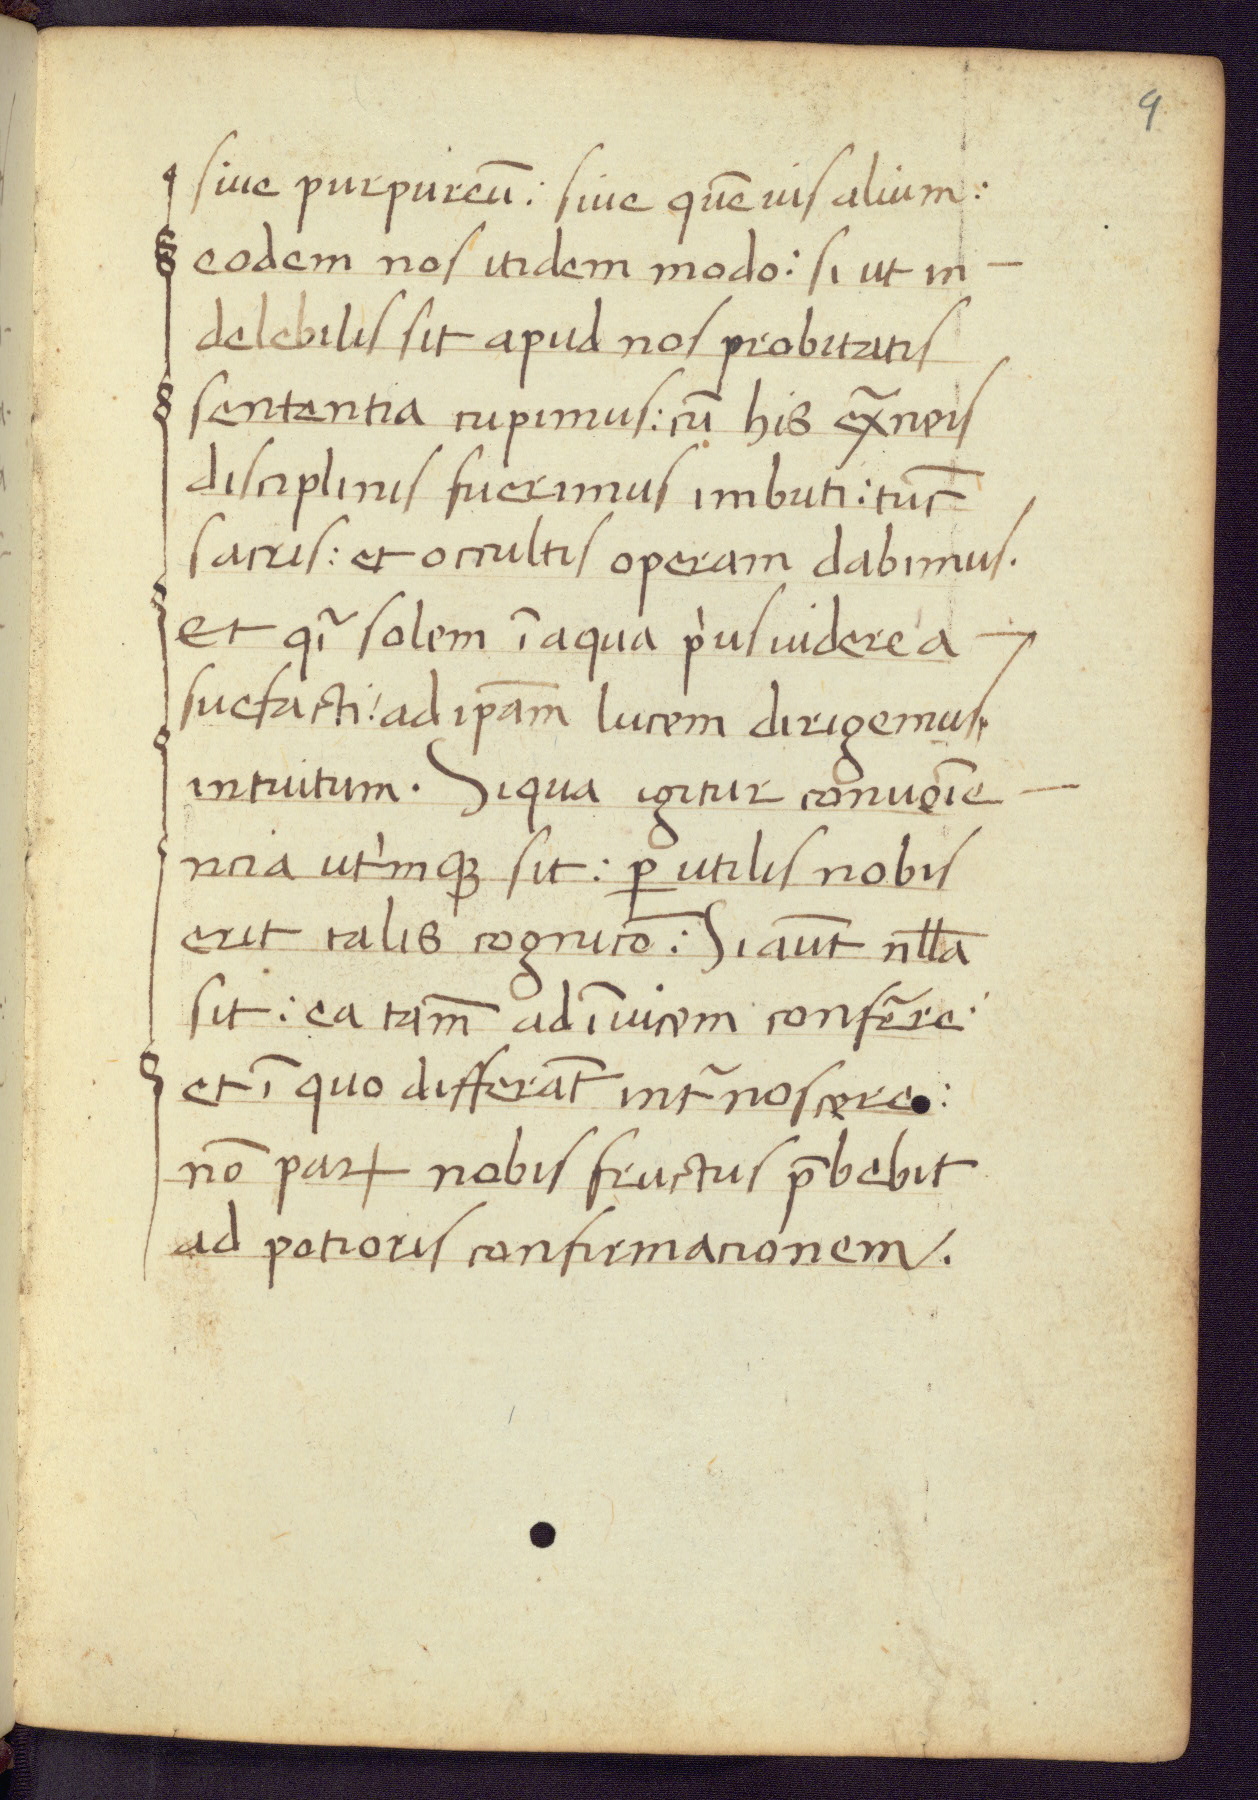 9
siue purpureū: siue quēuis alium:
eodem nos itidem modo: si ut in-
delebilis sit apud nos probitatis
sententia cupimus: cū his ex̃neis
disciplinis fuerimus imbuti: tūc
sacris: et occultis operam dabimus.
et q̄i solem ī aqua p'us uidere a-
suefacti: ad ip̄am lucem dirigemus
intuitum. Siqua igitur conueniē-
ncia ut'inqȝ sit: ꝑ utilis nobis
erit talis cognitō: Si aūt nlla
sit: ea tam̄ ad īuicem conferre:
et ī quo differāt int̃noscere:
nō par+ nobis fructus p̄bebit
ad potioris confirmationem.